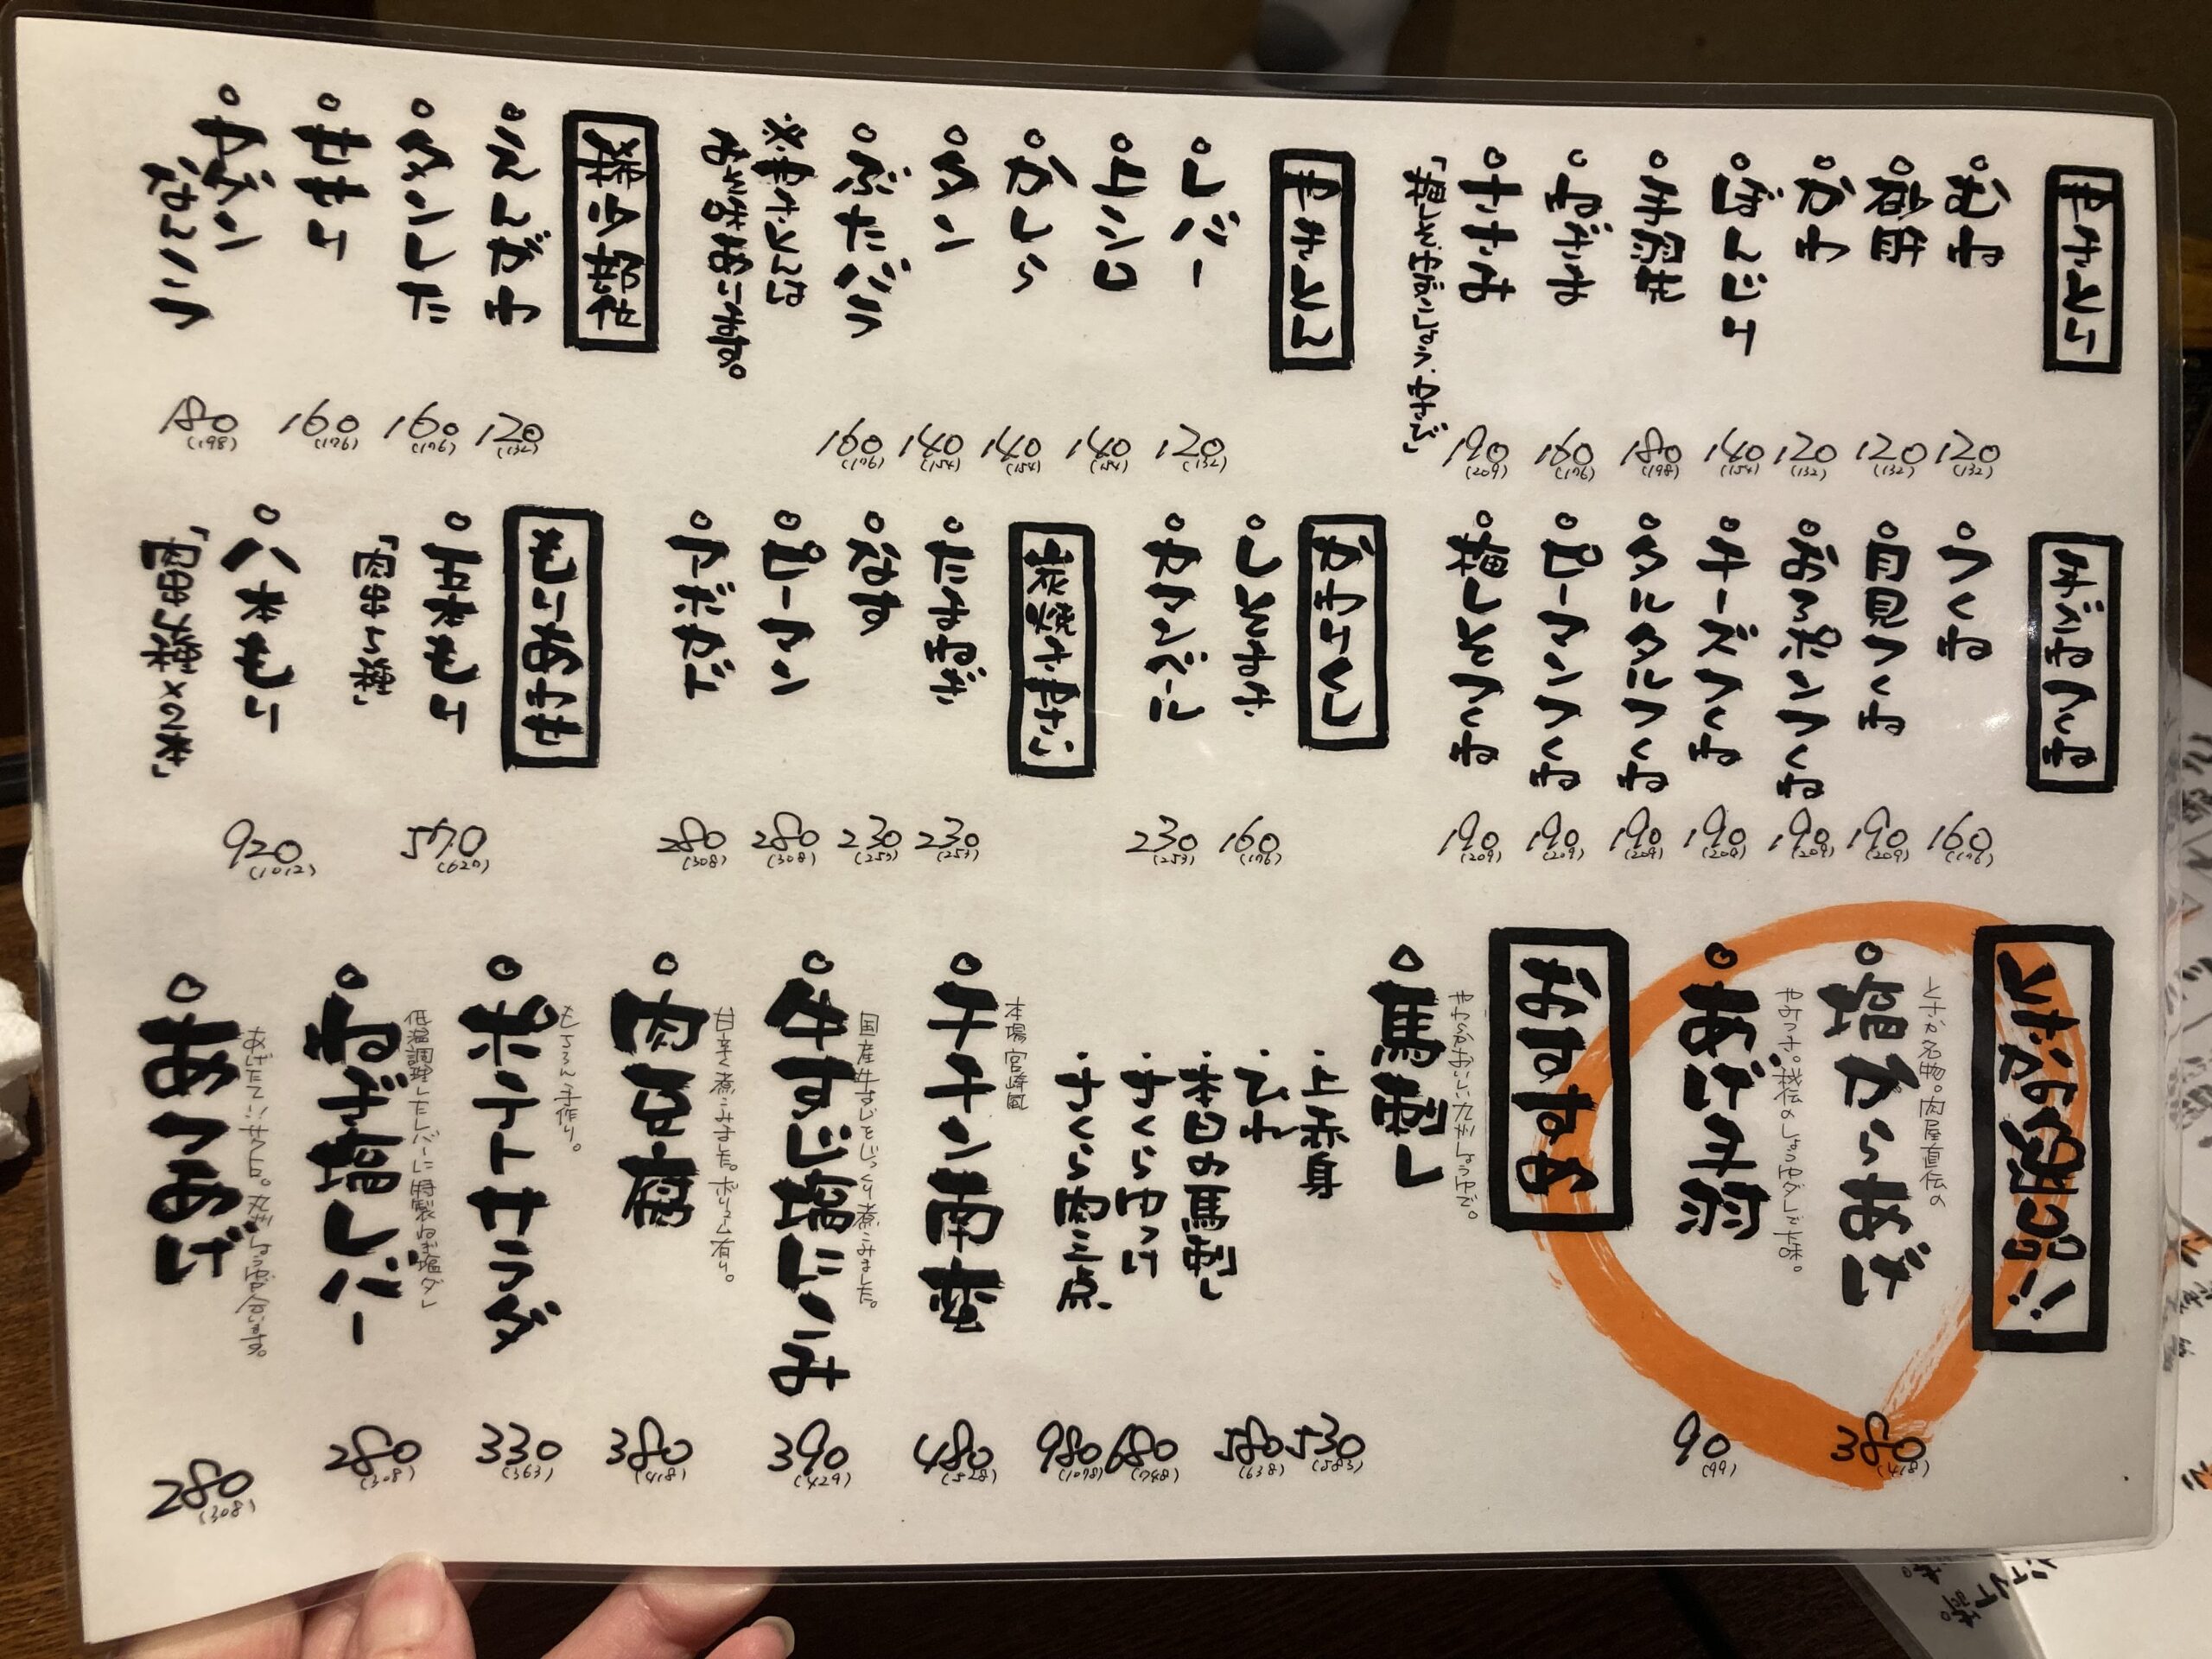 やきとり
むね 120 (132)
砂肝 120 (132)
かわ 120 (132)
ぼんじり 140 (154)
手羽先 180 (198)
ねぎま 160 (176)
ささみ 190 (209)
やきとん
レバー 120 (132)
上シロ 140 (154)
かしら 140 (154)
タン 140 (154)
ぶたバラ 160 (176)
※やきとんは
おみそ味あります。
希少部位
えんがわ 120 (132)
タンした 160 (176)
せせり 160 (176)
ヤゲン
なんこつ 180 (198)
手ごねつくね
つくね 160 (176)
月見つくね 190 (209)
おろポンつくね 190 (209)
チーズつくね 190 (209)
タルタルつくね 190 (209)
ピーマンつくね 190 (209)
梅しそつくね 190 (209)
かわりくし
しいたけ 160 (176)
カマンベール 230 (253)
炭焼きやさい
たまねぎ 230 (253)
なす 230 (253)
ピーマン 280 (308)
アボカド 280 (308)
もりあわせ
五本もり 570 (627)
「肉串5種」
八本もり 920 (1012)
「肉串4種×2本」
とさか名物!!
とさか名物。肉屋直伝の
塩からあげ 380 (418)
やみつき。秘伝のしょうゆダレと七味。
あげ手羽 90 (99)
おすすめ
やわらかおいしい九州しょうゆで。
馬刺し
・上赤身 530 (583)
・ひれ 580 (638)
・本日の馬刺し
・さくらゆっけ 680 (748)
・さくら肉三点 980 (1078)
本場宮崎風
チキン南蛮 480 (528)
国産牛すじをじっくり煮こみました。
牛すじ塩にこみ 390 (429)
甘辛く煮こみました。ボリューム有り。
肉豆腐 380 (418)
もちろん手作り。
ポテトサラダ 330 (363)
低温調理したレバーに特製ねぎ塩ダレ
ねぎ塩レバー 280 (308)
あつあげ 280 (308)